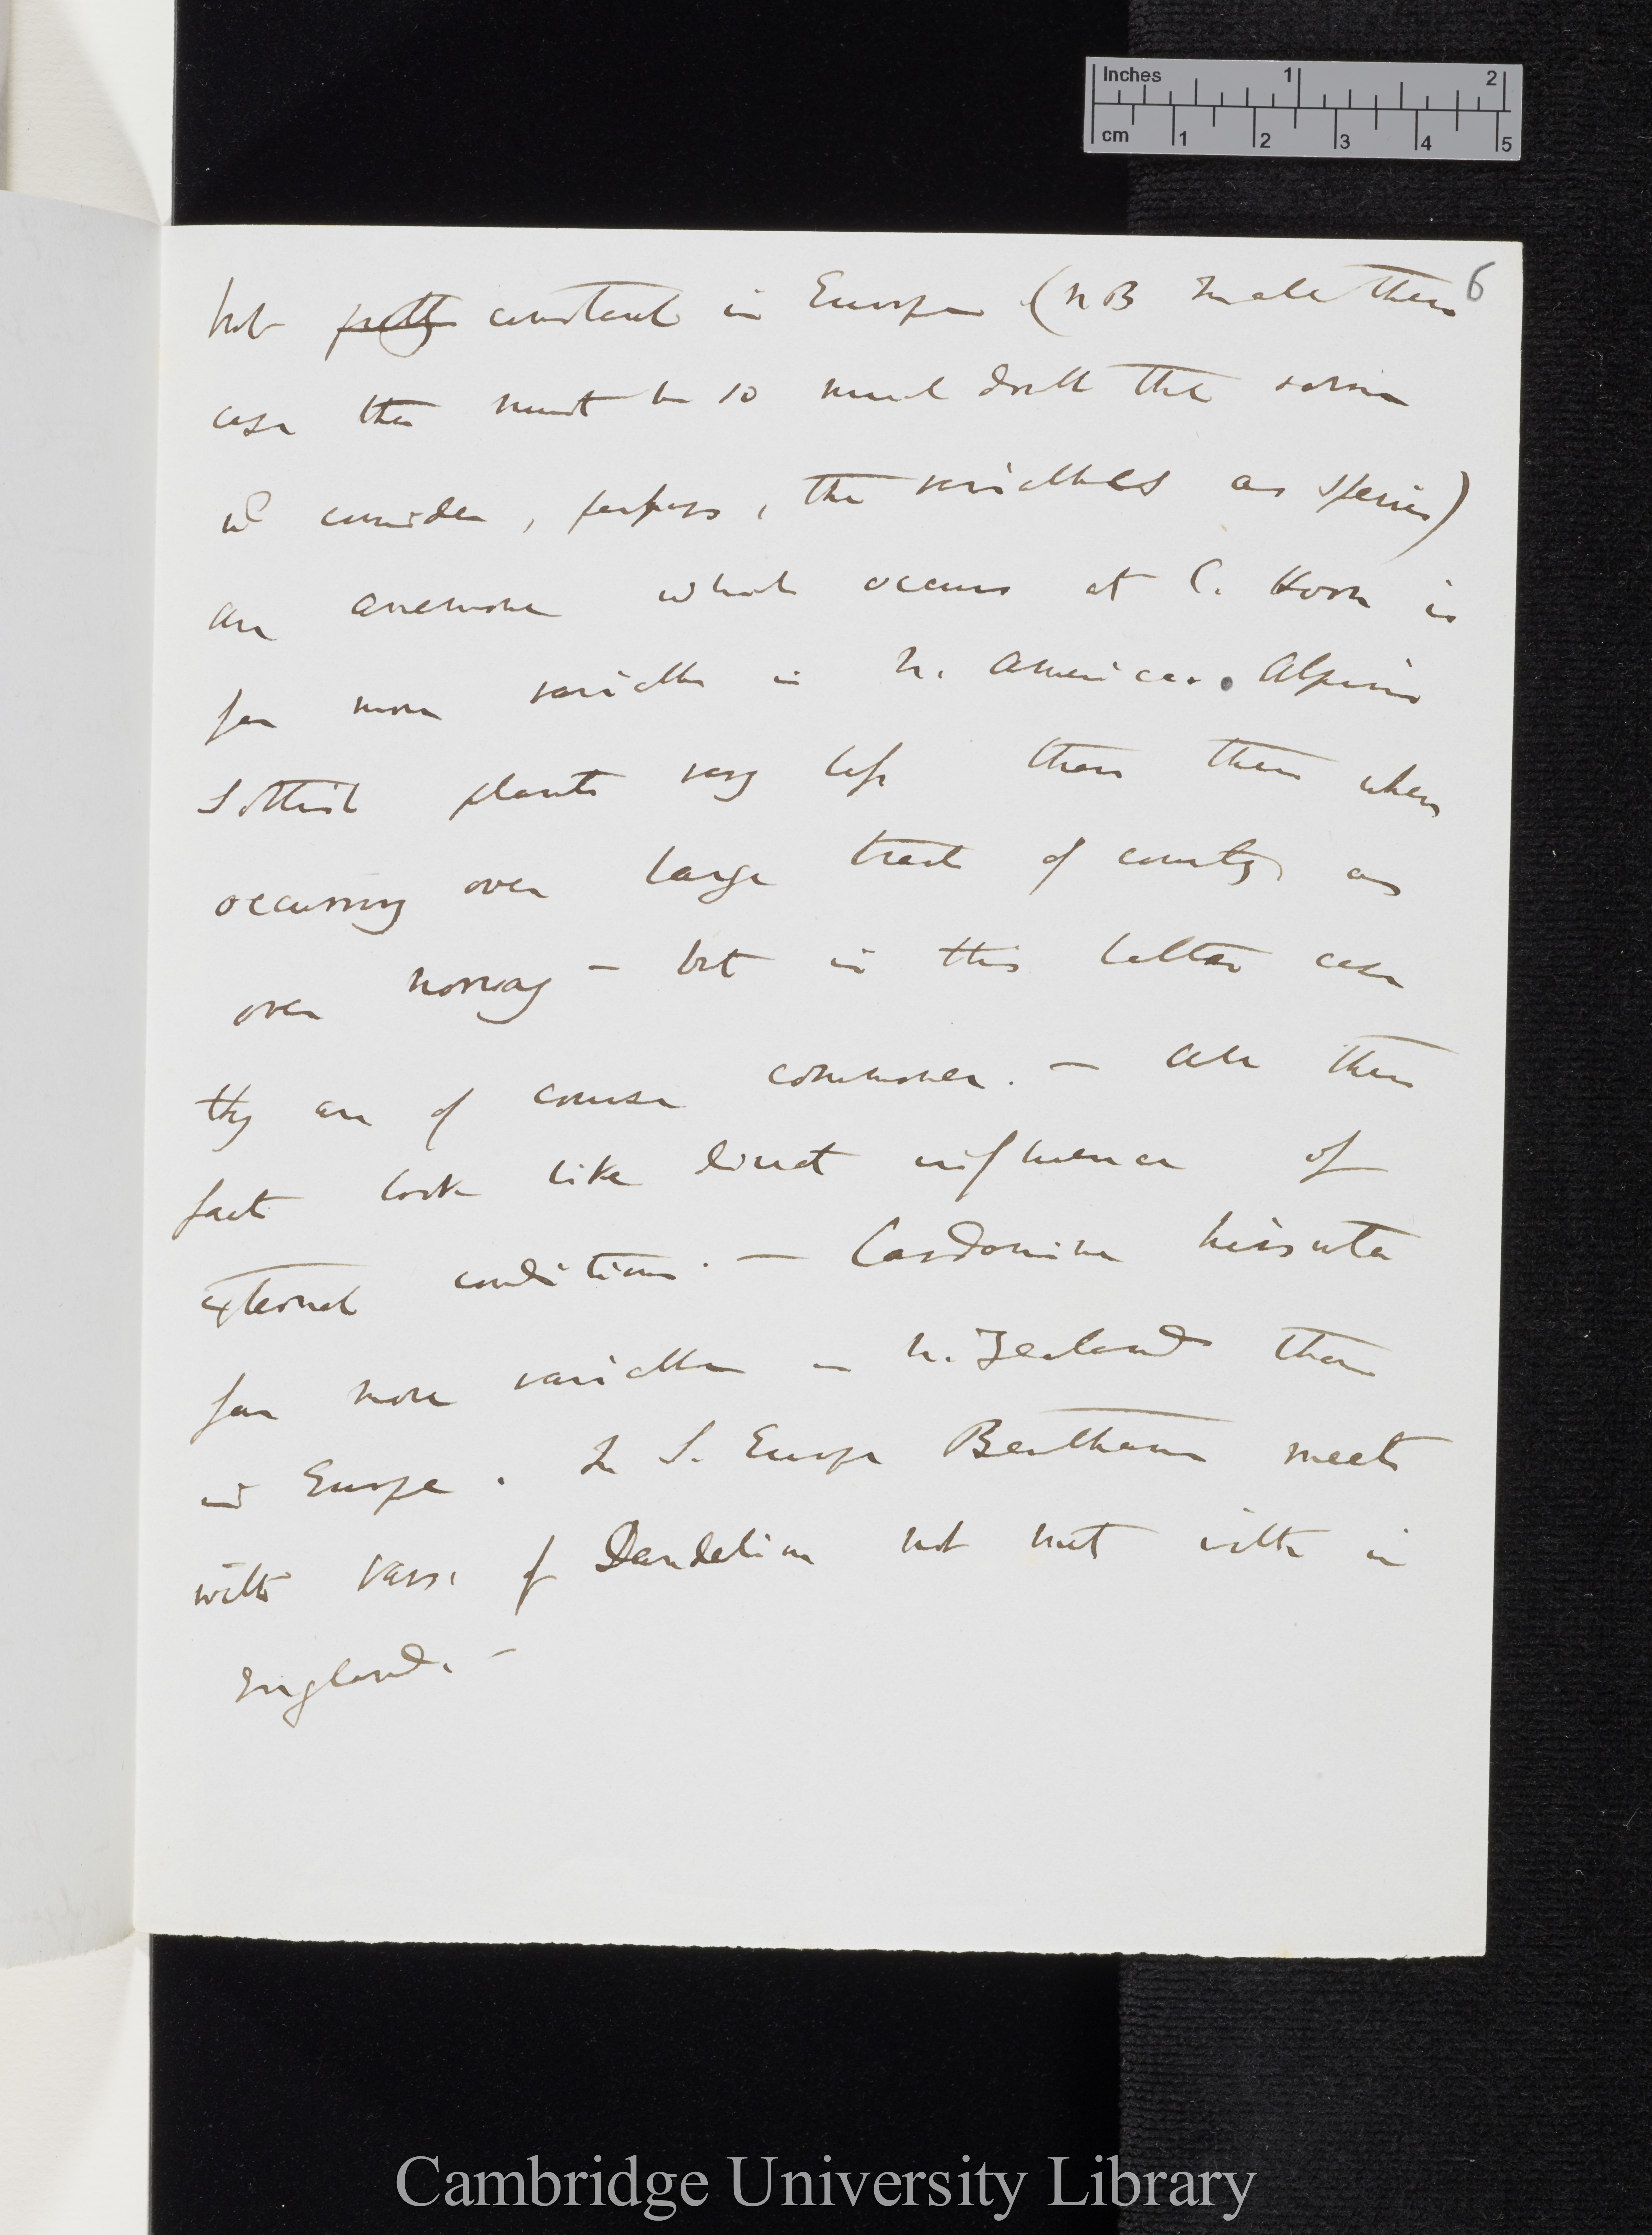 Inches 1 2
cm 1 2 3 4 5
6
but pretty constant in Europe (NB In all these
case there must be so much doubt that
wd consider, perhaps, the variables as species)
an anemone which occurs at C. Horn is
far more variable in N. America. Alpine
Scottish plants vary less than these when
occurring over large tract of country as
over Norway — but in this latter case
they are of course commoner. — All these
fact look like direct influence of
external conditions. — Cardamine hirsuta
far more variable in N. Zealand than
in Europe. In S. Europe Bentham meets
with vars. of Dandelion not met with in
England. —
Cambridge University Library